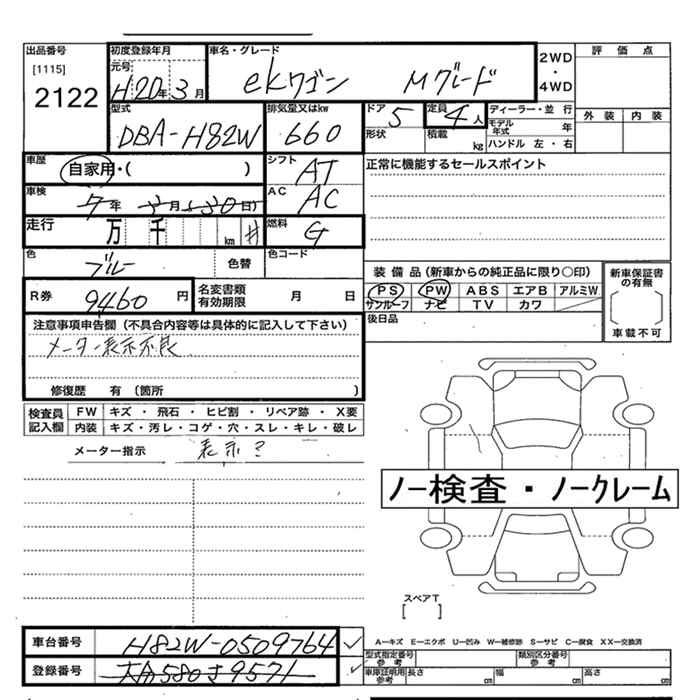 出品番号
[1115]
2122
初度登録年月
元号
H20年3月
車名・グレード
eKワゴン Mグレード
2WD
・
4WD
評価点
外装 内装
型式
DBA-H82W
排気量又はkw
660
ドア
5
形状
定員
4人
積載
kg
ディーラー・並行
モデル年式 年
ハンドル 左・右
車歴
自家用・( )
シフト
AT
正常に機能するセールスポイント
車検
7年 3月 30日
AC
AC
走行
万 千 km
燃料
G
色
ブルー
色替
色コード
装備品(新車からの純正品に限り○印)
PS PW ABS エアB アルミW
サンルーフ ナビ TV カワ
新車保証書の有無
車載不可
後日品
R券
9460円
名変書類有効期限 月 日
注意事項申告欄(不具合内容等は具体的に記入して下さい)
メーター表示不良
修復歴 有(箇所 )
検査員記入欄
FW キズ・飛石・ヒビ割・リペア跡・X要
内装 キズ・汚レ・コゲ・穴・スレ・キレ・破レ
メーター指示
表示?
ノー検査・ノークレーム
スペアT
[ ]
車台番号
H82W-0509764
登録番号
大分580さ9571
A-キズ E-エクボ U-凹み W-補修跡 S-サビ C-腐食 XX-交換済
型式指定番号
参考
類別区分番号
参考
車庫証明用
参考
長さ cm 幅 cm 高さ cm